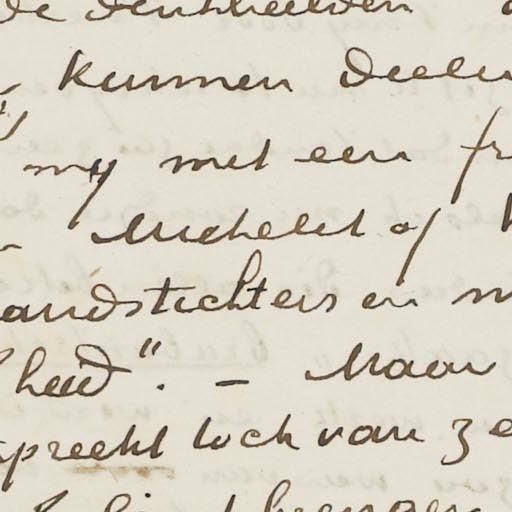 de denkbeelden
kunnen deelen
my met een fr
Michelet of
andstichters en m
heid". – Maar
spreekt toch van ze